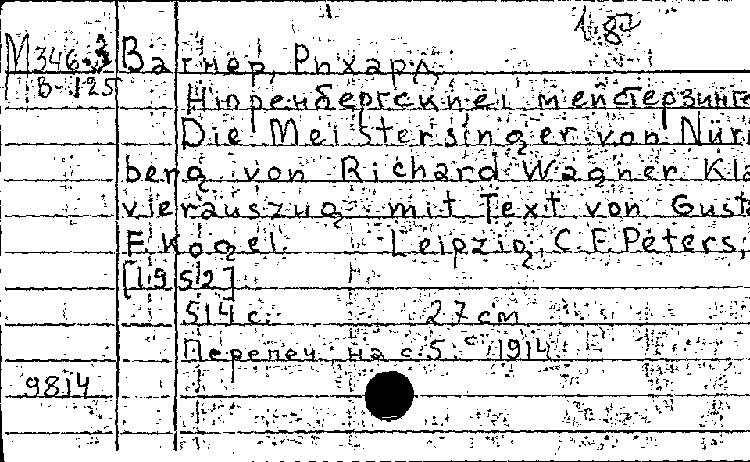 М346.3 Вагнер, Рихард,
В-125
Нюренбергские мейстерзинге
Die Meistersinger von Nür
berg von Richard Wagner Kla
vierauszug mit Text von Gust
F. Kogel Leipzig, C. F. Peters,
[1952]
514 с. 27 см
Перепеч. на с. 5 : с 1914
9814